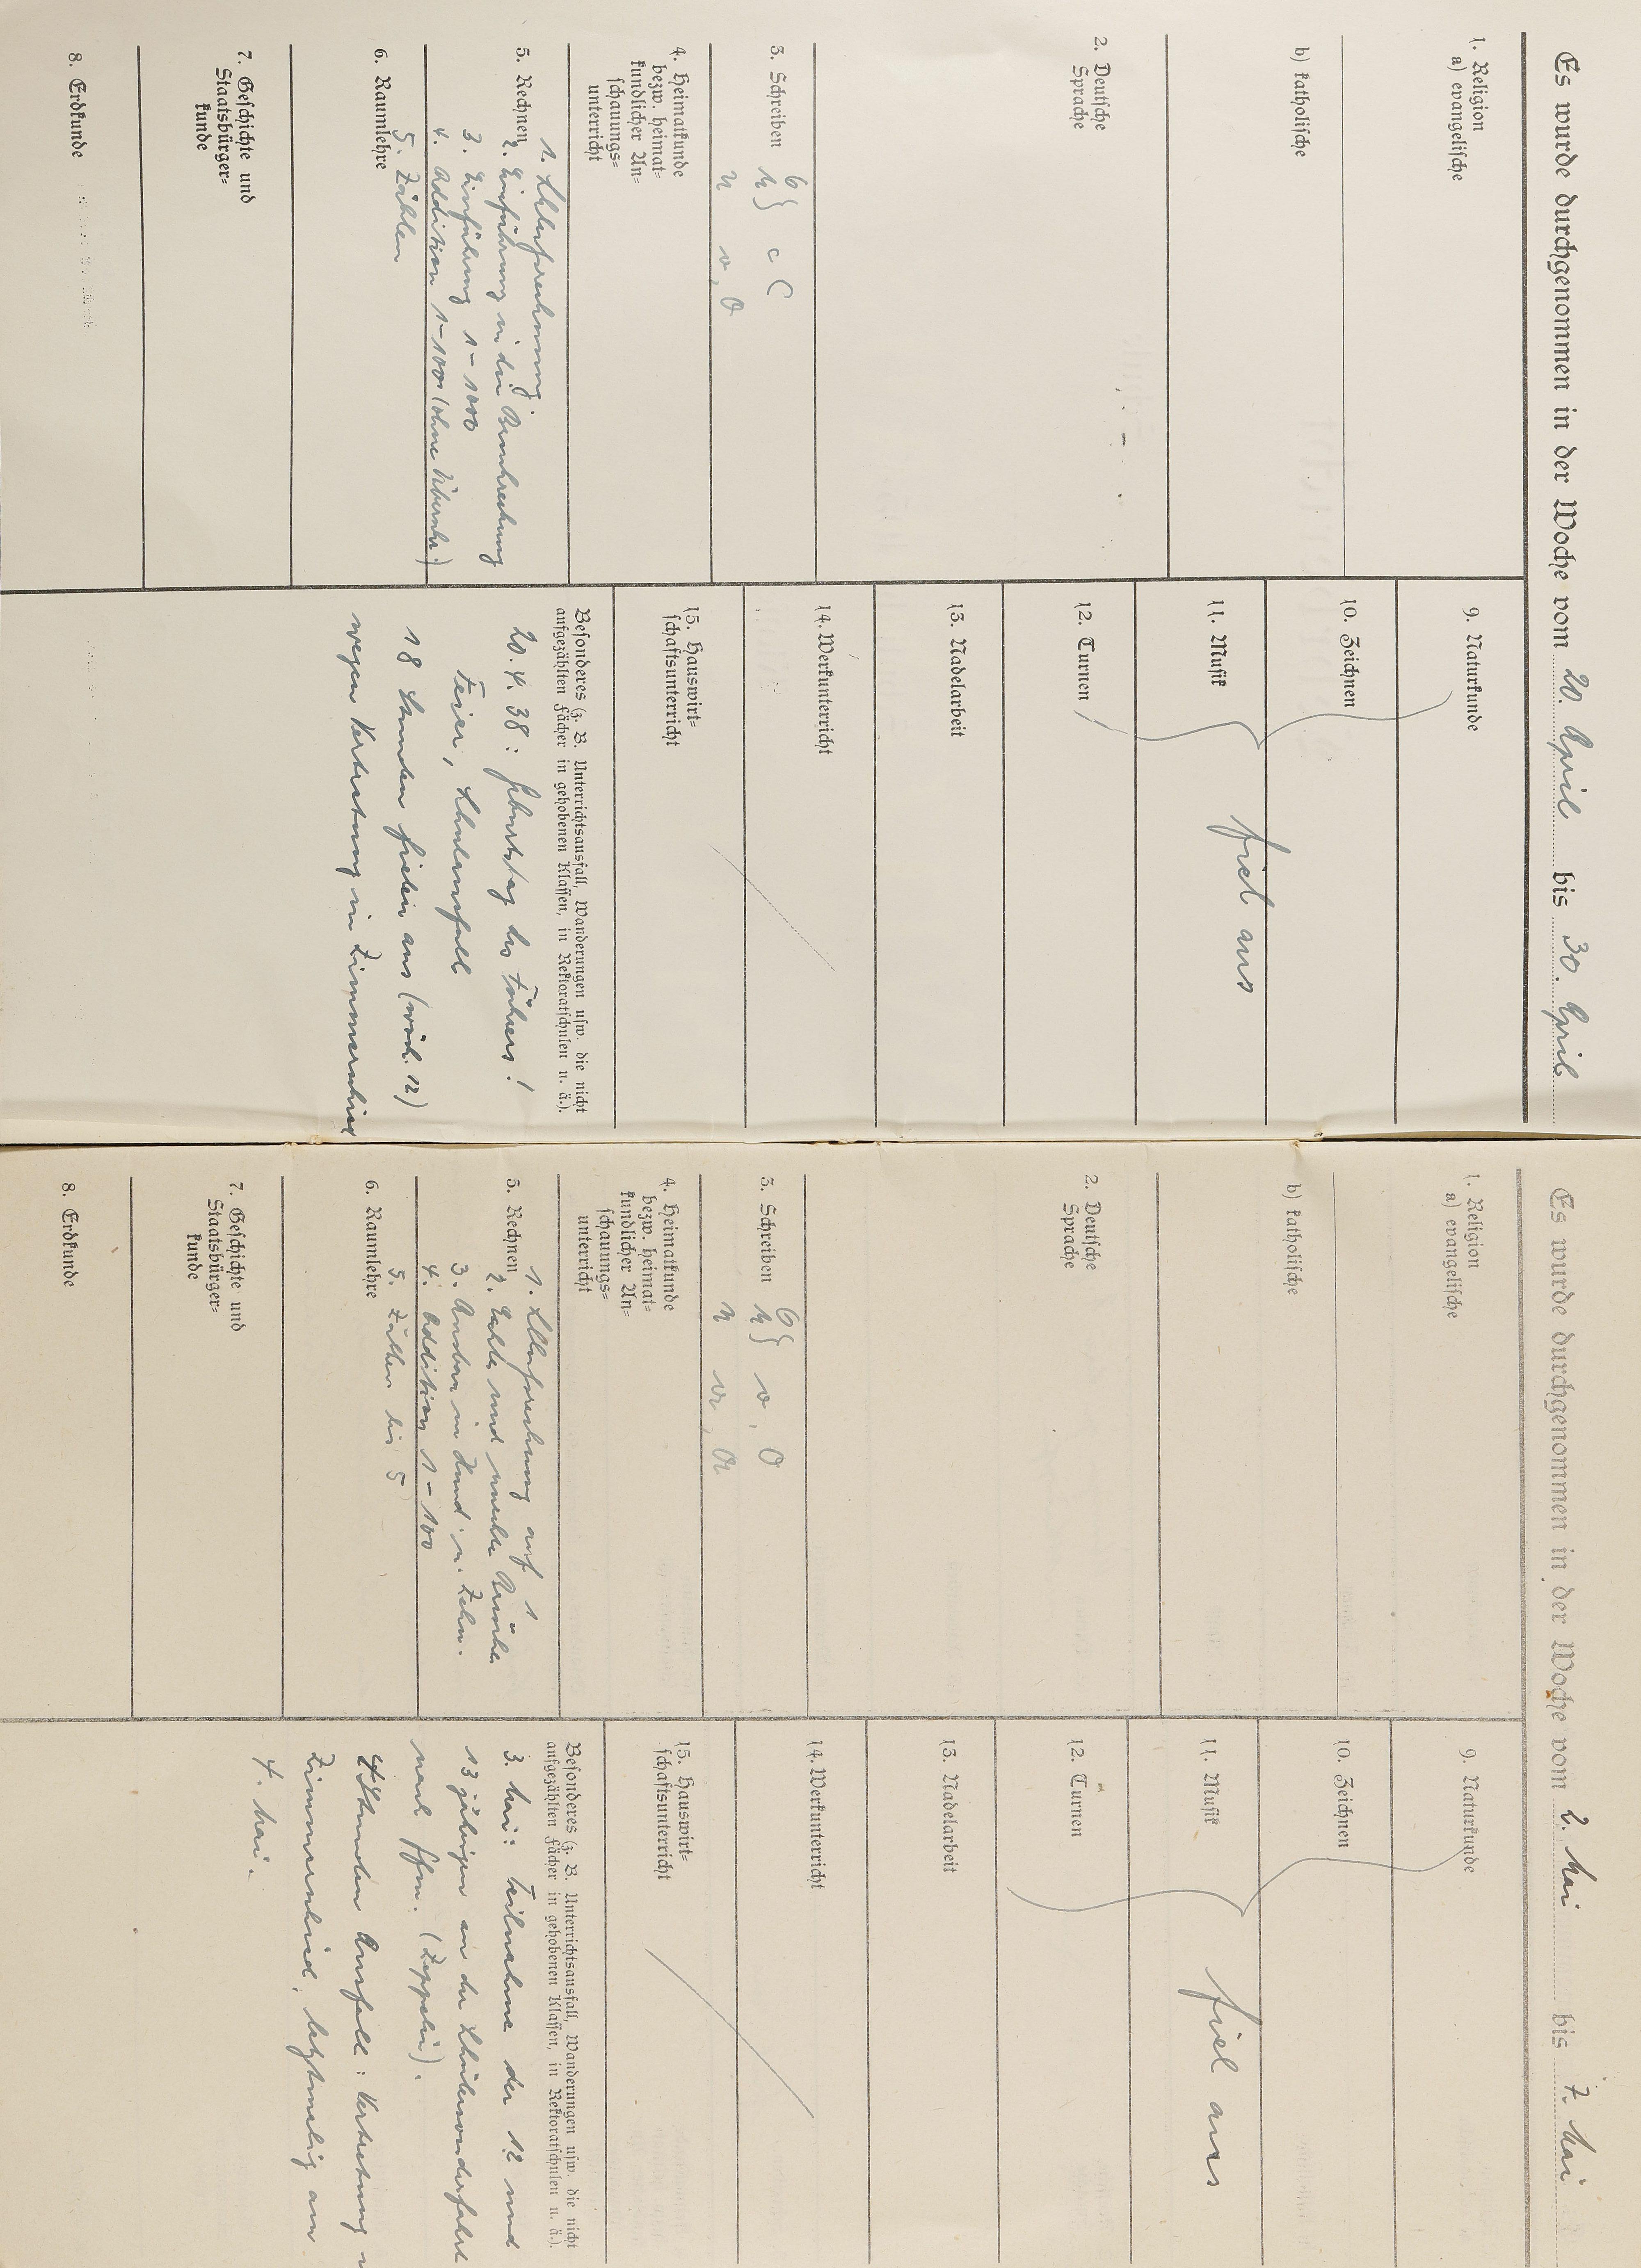 Es wurde durchgenommen in der Woche vom 20. April bis 30. April
1. Religion
a) evangelische
b) katholische
2. Deutsche
Sprache
3. Schreiben
4. Heimatkunde
bezw. heimat-
kundlicher An-
schauungs-
unterricht
5. Rechnen
1. Schlußrechnung
2. Einführung in die Bruchrechnung
3. Einführung 1-1000
4. Addition 1-100 (ohne Überschr.)
5. Zählen
6. Raumlehre
7. Geschichte und
Staatsbürger-
kunde
8. Erdkunde
9. Naturkunde
10. Zeichnen
11. Musik
fiel aus
12. Turnen
13. Nadelarbeit
14. Werkunterricht
15. Hauswirt-
schaftsunterricht
Besonderes (z. B. Unterrichtsausfall, Wanderungen usw. die nicht
aufgezählten Fächer in gehobenen Klassen, in Rektoratschulen u. ä.).
20. 4. 38: Geburtstag des Führers!
Feier, Schulausfall
18 Stunden fielen aus (wöch. 12)
wegen Vertretung in Zimmerschied
Es wurde durchgenommen in der Woche vom 2. Mai bis 7. Mai
1. Religion
a) evangelische
b) katholische
2. Deutsche
Sprache
3. Schreiben
o, O
4. Heimatkunde
bezw. heimat-
kundlicher An-
schauungs-
unterricht
5. Rechnen
1. Schlußrechnung auf 1
2. Echte und unechte Brüche
3. Ausbau in Hund. u. Zehn.
4. Addition 1-100
5. Zählen bis 5
6. Raumlehre
7. Geschichte und
Staatsbürger-
kunde
8. Erdkunde
9. Naturkunde
10. Zeichnen
11. Musik
fiel aus
12. Turnen
13. Nadelarbeit
14. Werkunterricht
15. Hauswirt-
schaftsunterricht
Besonderes (z. B. Unterrichtsausfall, Wanderungen usw. die nicht
aufgezählten Fächer in gehobenen Klassen, in Rektoratschulen u. ä.).
3. Mai: Teilnahme der 12 und
13 jährigen an der Schülersonderfahrt
nach Ffm. (Zeppelin).
4 Stunden Ausfall: Vertretung
Zimmerschied, letztmalig am
4. Mai.